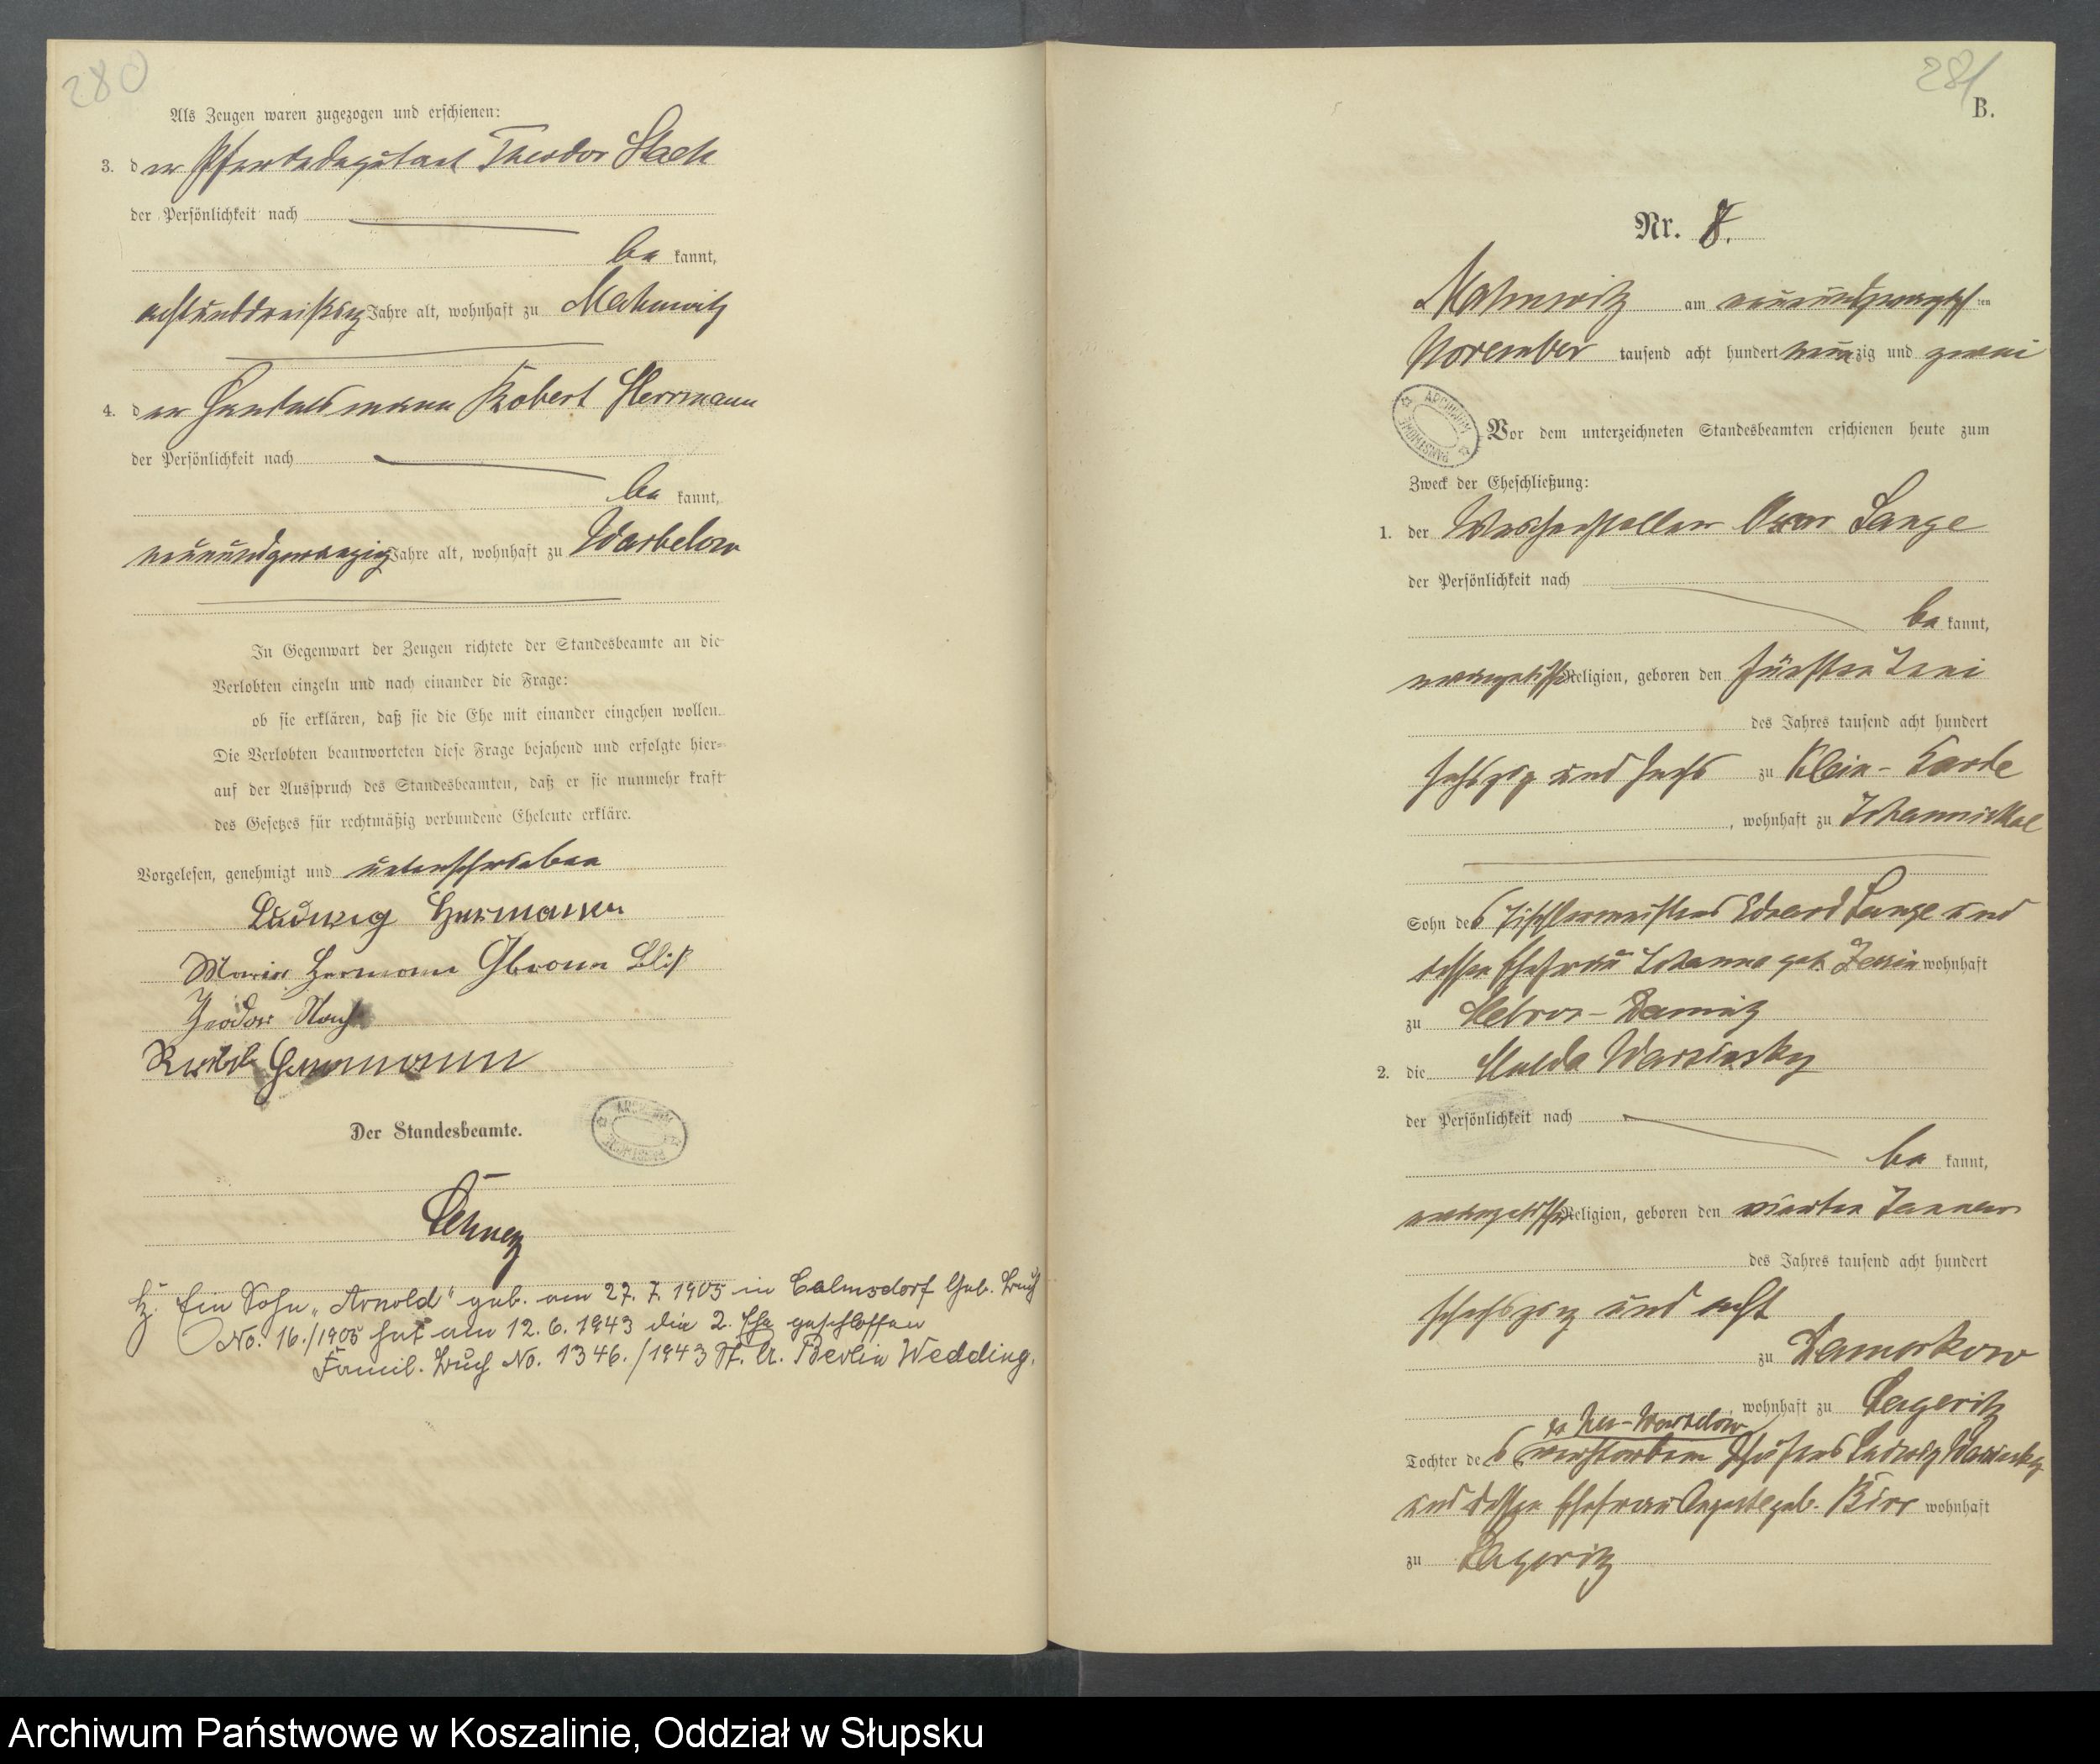 280
Als Zeugen waren zugezogen und erschienen:
3. der Pferdedeputant Theodor Stach
der Persönlichkeit nach
be kannt,
achtunddreißig Jahre alt, wohnhaft zu Mahnwitz
4. der Handelsmann Robert Herrmann
der Persönlichkeit nach
be kannt,
neunundzwanzig Jahre alt, wohnhaft zu Warbelow
In Gegenwart der Zeugen richtete der Standesbeamte an die
Verlobten einzeln und nach einander die Frage:
ob sie erklären, daß sie die Ehe mit einander eingehen wollen.
Die Verlobten beantworteten diese Frage bejahend und erfolgte hier-
auf der Ausspruch des Standesbeamten, daß er sie nunmehr kraft
des Gesetzes für rechtmäßig verbundene Eheleute erkläre.
Vorgelesen, genehmigt und unterschrieben
Ludwig Hermann
Marie Hermann
Theodor Stach
Robert Herrmann
Der Standesbeamte.
ARCHIWUM PAŃSTWOWE
Ein Sohn „Arnold" geb. am 27. 7. 1905 in Calmsdorf Geb. Buch
No. 16./1905 hat am 12. 6. 1943 die 2. Ehe geschlossen
Famil. Buch No. 1346./1943 St. A. Berlin Wedding.
281
B.
Nr. 8.
Mahnwitz am neunundzwanzigsten
November tausend acht hundert neunzig und zwei
ARCHIWUM PAŃSTWOWE
Vor dem unterzeichneten Standesbeamten erschienen heute zum
Zweck der Eheschließung:
1. der Oscar Lange
der Persönlichkeit nach
be kannt,
evangelischer Religion, geboren den fünften Juni
des Jahres tausend acht hundert
sechszig und sechs zu Klein-
, wohnhaft zu Johannisthal
Sohn des Tischlermeisters Eduard Lange und
dessen Ehefrau Johanna geb. wohnhaft
zu Hebron-Damnitz
2. die Hulda Warsinsky
der Persönlichkeit nach
be kannt,
evangelischer Religion, geboren den vierten Januar
des Jahres tausend acht hundert
sechszig und acht
zu Damerkow
wohnhaft zu Lageritz
zu Neu-Warbelow
Tochter des verstorbenen Schäfers Ludwig Warsinsky
und dessen Ehefrau Auguste geb. Birr wohnhaft
zu Lageritz
Archiwum Państwowe w Koszalinie, Oddział w Słupsku